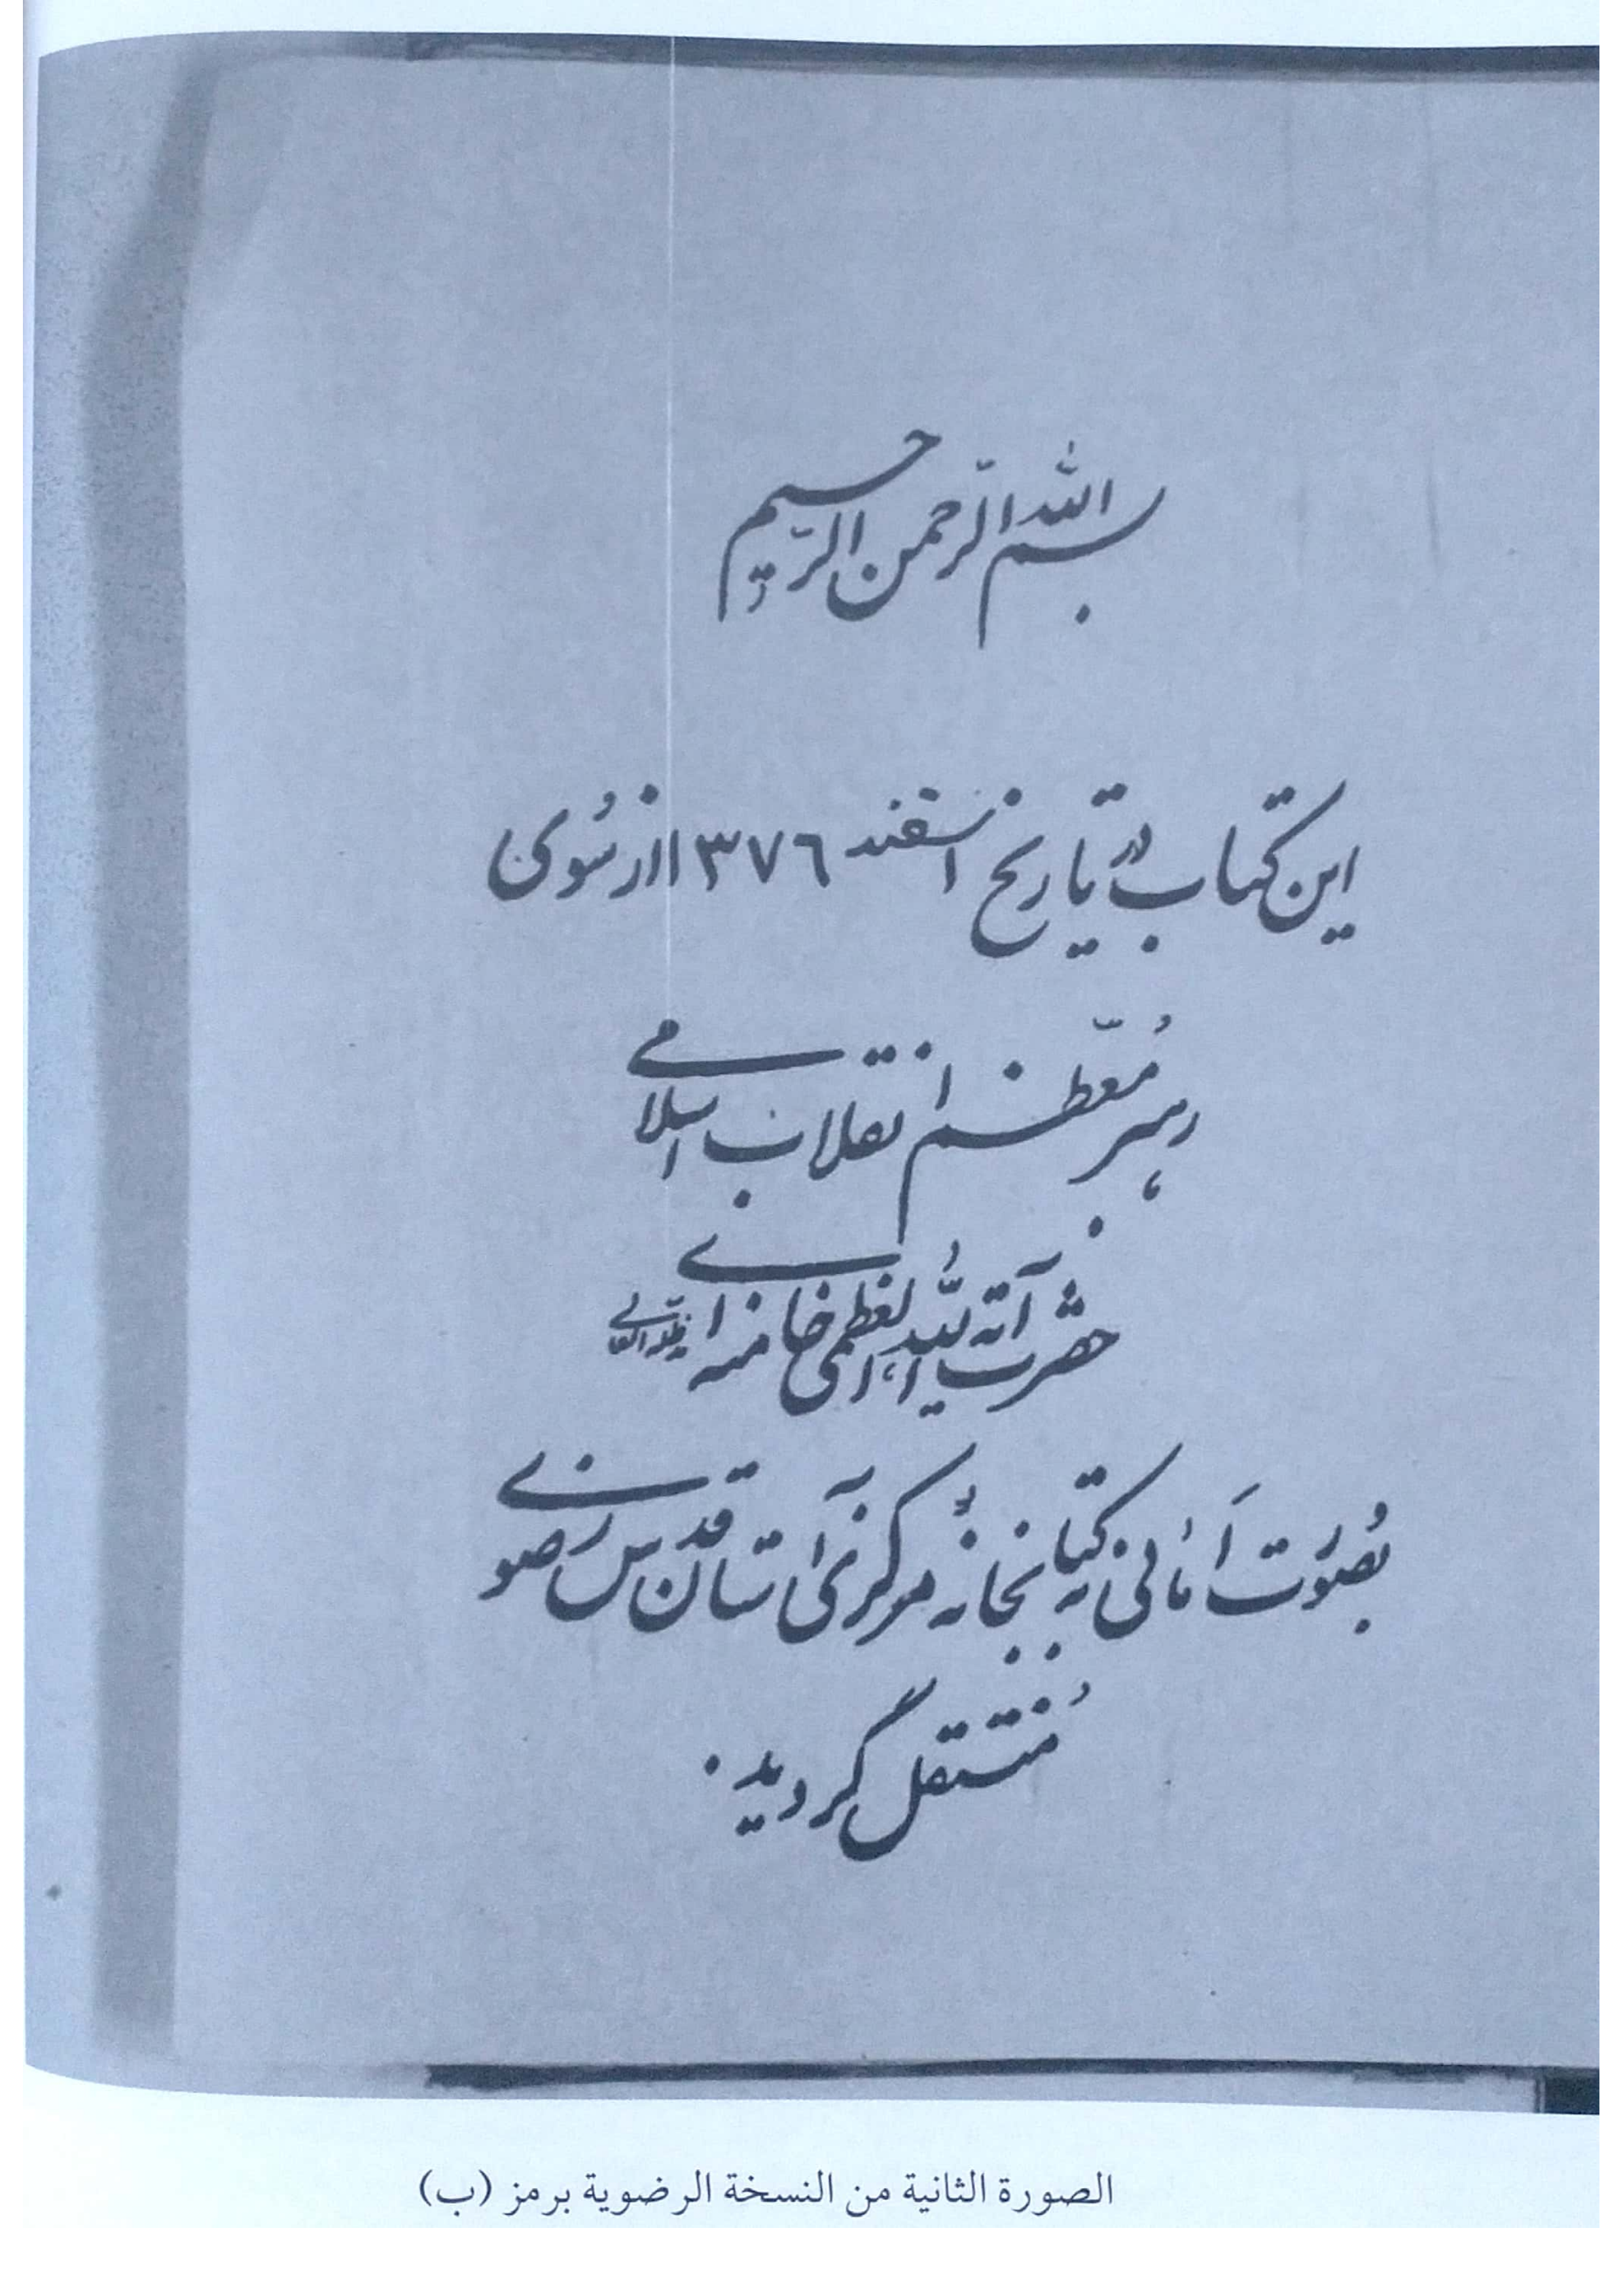 بسم الله الرّحمن الرّحیم
این کتاب در تاریخ اسفند ١٣٧٦ از سُوی
رهبر مُعظّم انقلاب اسلامی
حضرت آیة اللّه العُظمی خامنه ای مدظله العالی
بصُورَت اَمانی به کتابخانهٔ مرکزی آستان قدس رَضوی
مُنتقل گردید.
الصورة الثانية من النسخة الرضوية برمز (ب)